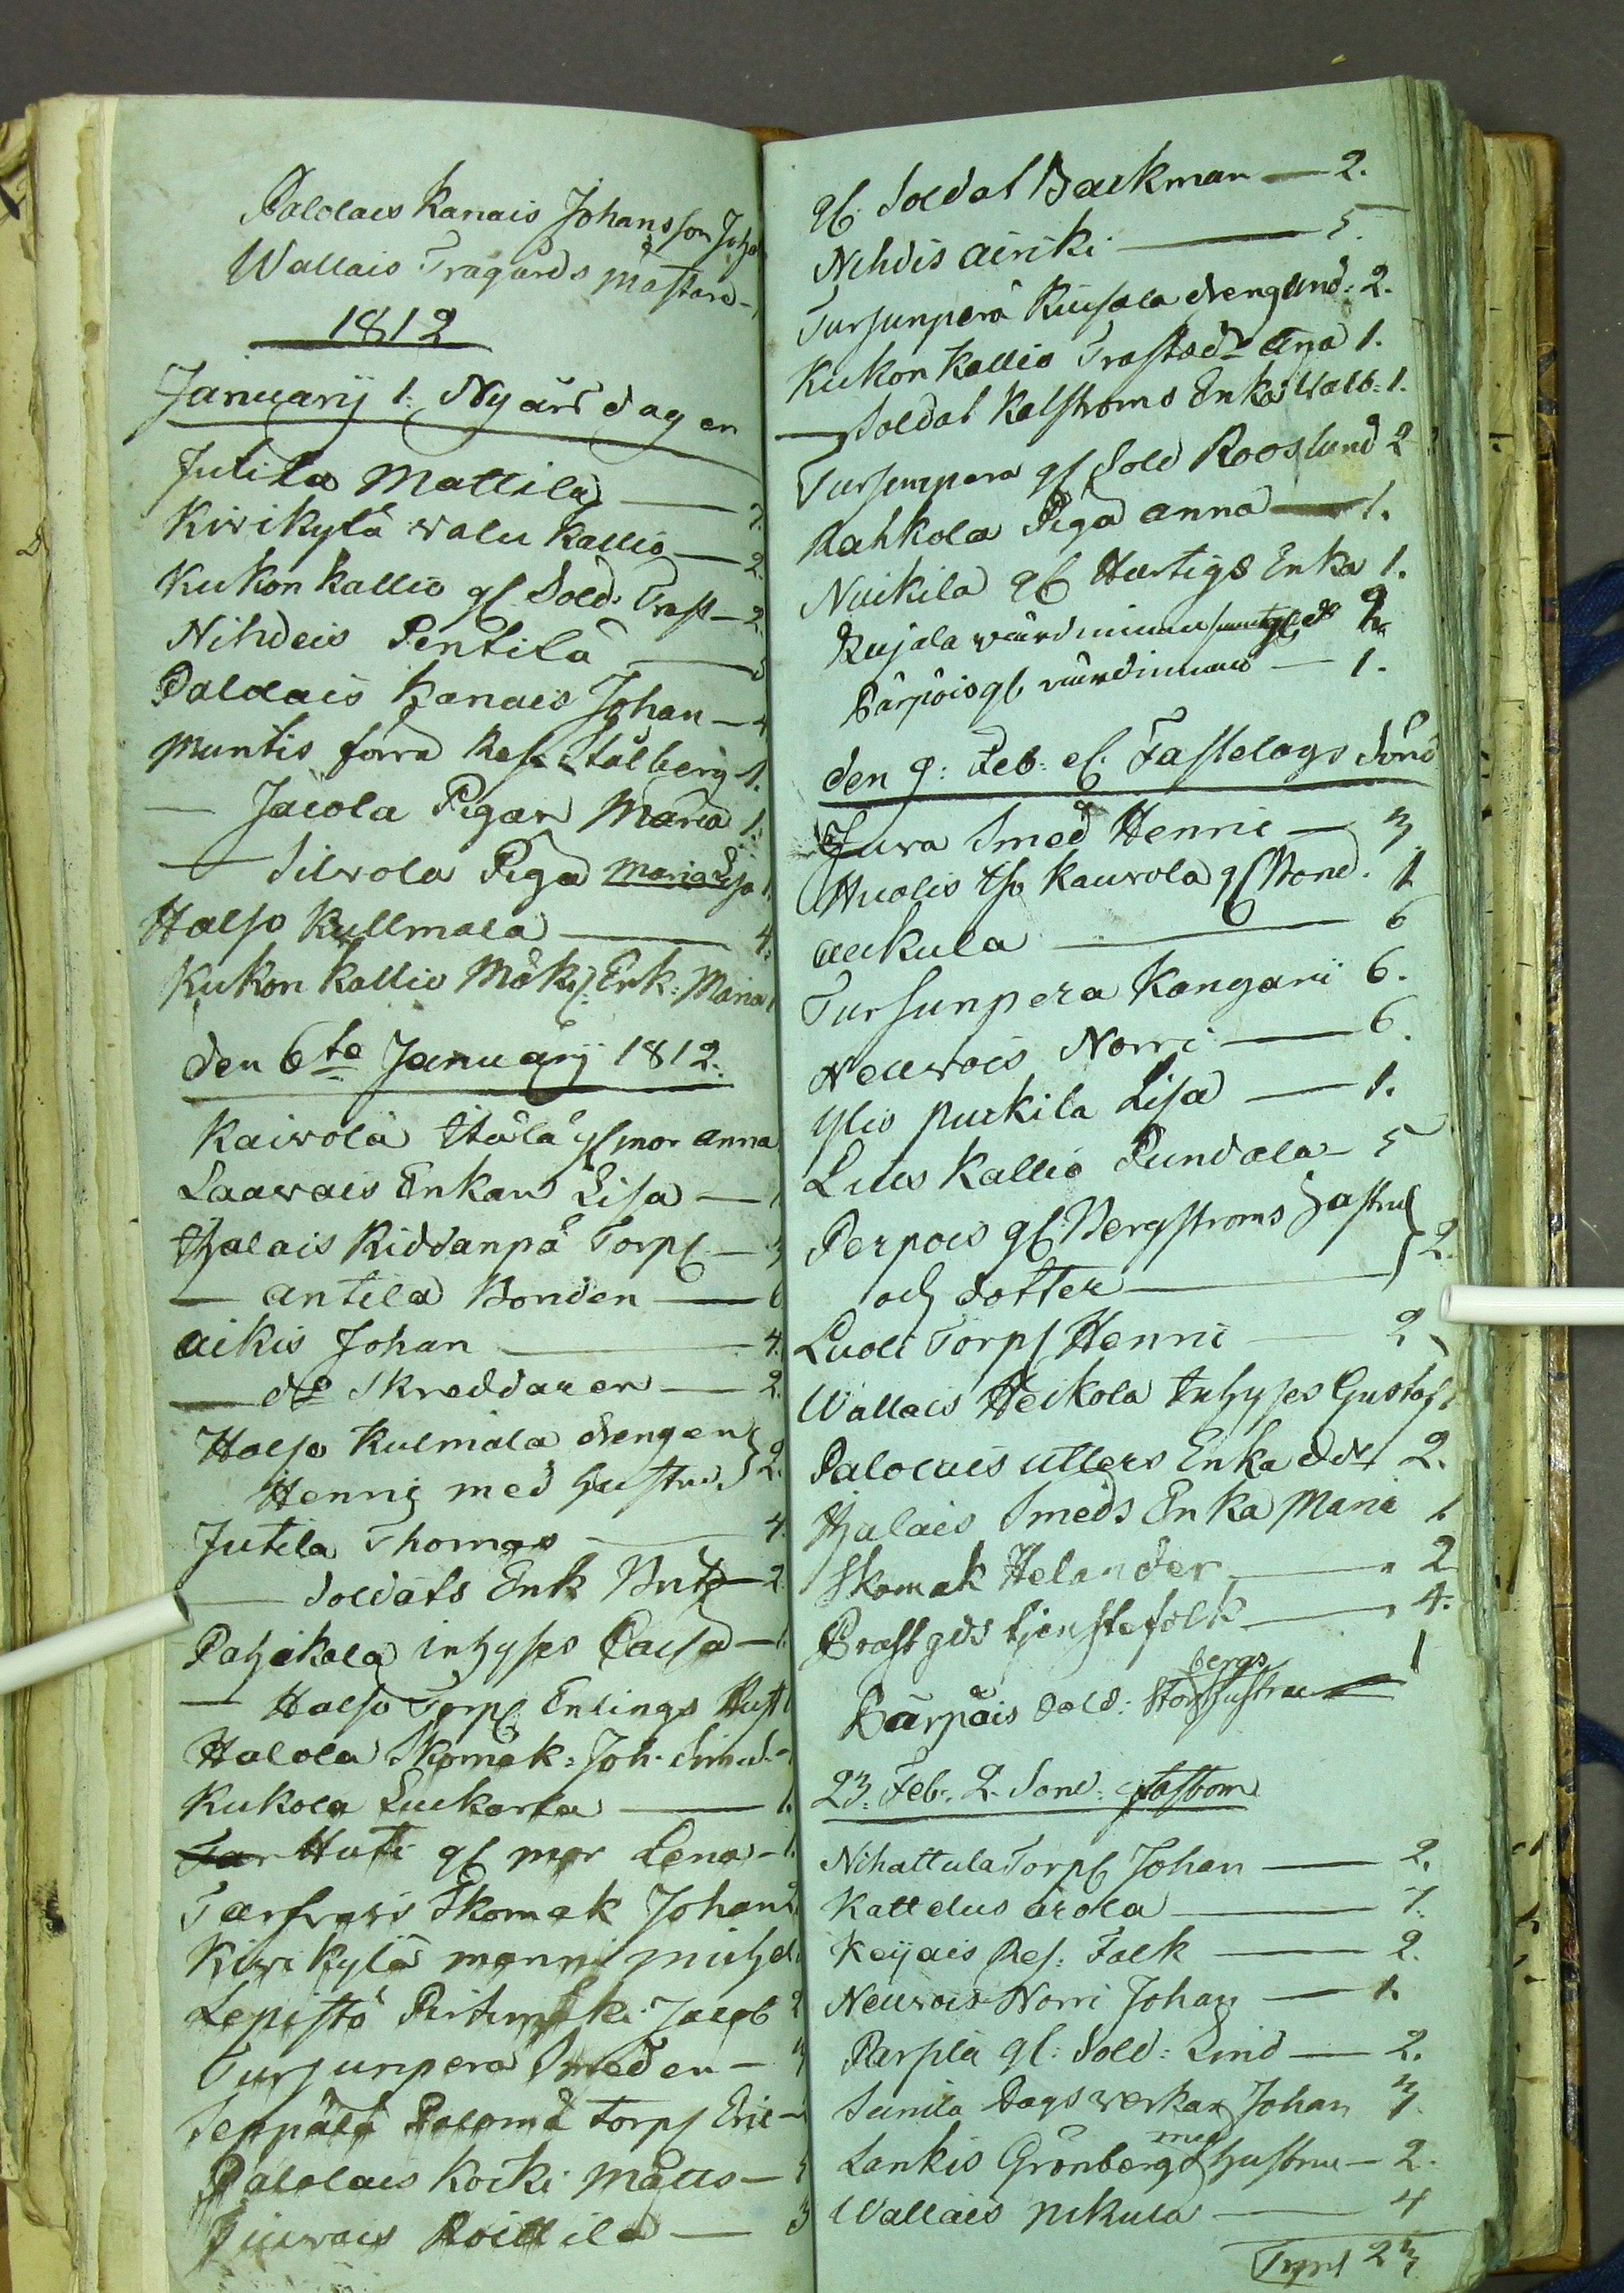 Palolais Kanais Johansson Joha
Wallais Tragårds mästare
1812
Januarij 1. Nyårs dagen
Jutila Mattila — 7.
Kirikylä walu Kallio — 2.
Kukon kallio gl. Sold: Trast — 2.
Nihdeis Pentila — 5
Palolais Kanais Johan — 4
Muntis förra Res: Stålberg 1.
— Jacola Pigan Maria 1.
— Silvola Piga Maria Lisa 1.
Halso Kullmala — 4.
Kukon kallio Mäki: Enk: Maria 1
den 6te Januarij 1812.
Kaivola Ihala gl mor Anna
Laawais Enkan Lisa — 1
Ihalais Riddanpä Torp — 3
— Antila Bonden — 6
Aikis Johan — 4.
— do Skreddaren — 2.
Halso Kulmala drengen
Henric med hustru } 2.
Jutila Thomas — 4.
— Soldats Enk Brita — 2.
Pahikala inhyses Caisa — 1.
— Halso Torp: Enlings Hust
Halola Skomak: Joh.
Kukola Luckarla — 1.
Huti gl mor Lena — 1.
Skomak Johan 2
Kirikylä manni michel
Lepistö Jacob 2
Tursunpera Smeden — 3
Seppälä Palomä torp Eric —
Palolais Kocki Matts — 5
Roukila — 3
gl: Soldat Backman — 2.
Nihdis Airiki — 5.
Tursunperä Kuusela drengen 2.
Kukon kallio Trastens Ana 1.
— Soldat Kalstroms Enka Walb: 1.
Tursunpera gl Sold Rooslund 2
Rahkola Piga Anna — 1.
Nuikila gl Hartigs Enka 1.
Kujala wärdinnan 2.
Pärpöis gl. värdinnan — 1.
den 9: Feb: el. Fastelags Sönd
Juva Smed Henric — 3
Huolis Iso Kauvola gl Bond. 1.
Aukula — 6
Tursunpera Kangari 6.
Neuvois Norri — 6.
Ylis Purkila Lisa — 1.
Luts Kallio Pundala — 5
Perpois gl: Bergstroms hustru
och dotter — } 2.
Luoli Torp Henric — 2
Wallais Heikola Inhyses Gustaf 1
Palolais Utters Enka 2.
Ihalais Smeds Enka Maria 1.
Skomak Helander — 2
Prästgds tjenstefolk — 4.
Pärpäis Sold: Storbergs hustru 1
23: Feb: 2. Sönd: fastom
Nihattula Torp Johan — 2.
Kattelus Arola — 7.
Keijais Res: Falk — 2.
Neuvois Norri Johan — 1.
Parpla gl: Sold: Lind — 2.
Sunila Dagsverkar Johan 3.
Lankis Grönberg med hustru — 2.
Wallais Nikula — 4
23